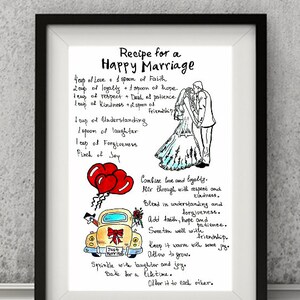 Recipe for a
Happy Marriage
4 cup of Love + 1 spoon of Faith
2 cup of loyalty + 1 spoon of hope
1 cup of respect + Dash of patience
1 cup of kindness + 1 spoon of
friendship
1 cup of Understanding
1 spoon of laughter
1 cup of Forgiveness
Pinch of Joy
Combine love and loyalty.
Mix through with respect and
kindness.
Blend in understanding and
forgiveness.
Add faith, hope and
patience.
Sweeten well with
friendship.
Keep it warm with some joy.
Allow to grow.
Sprinkle with laughter and joy.
Bake for a lifetime.
Offer it to each other.